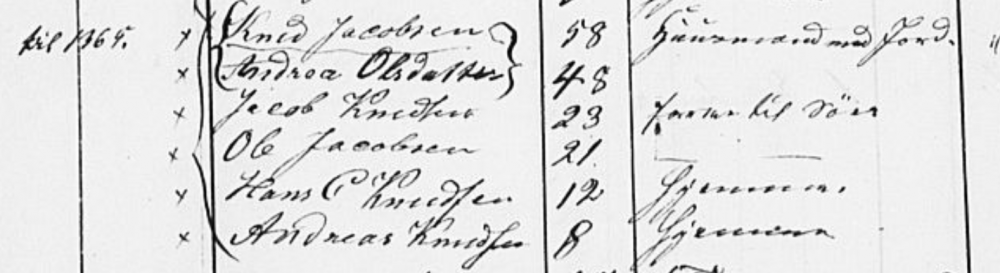 til 1865. x Knud Jacobsen 58 Huusmand med Jord.
x Andrea Olsdatter 48
x Jacob Knudsen 23 farer til Søes
x Ole Jacobsen 21 —
x Hans C Knudsen 12 hjemme.
x Andreas Knudsen 8 hjemme